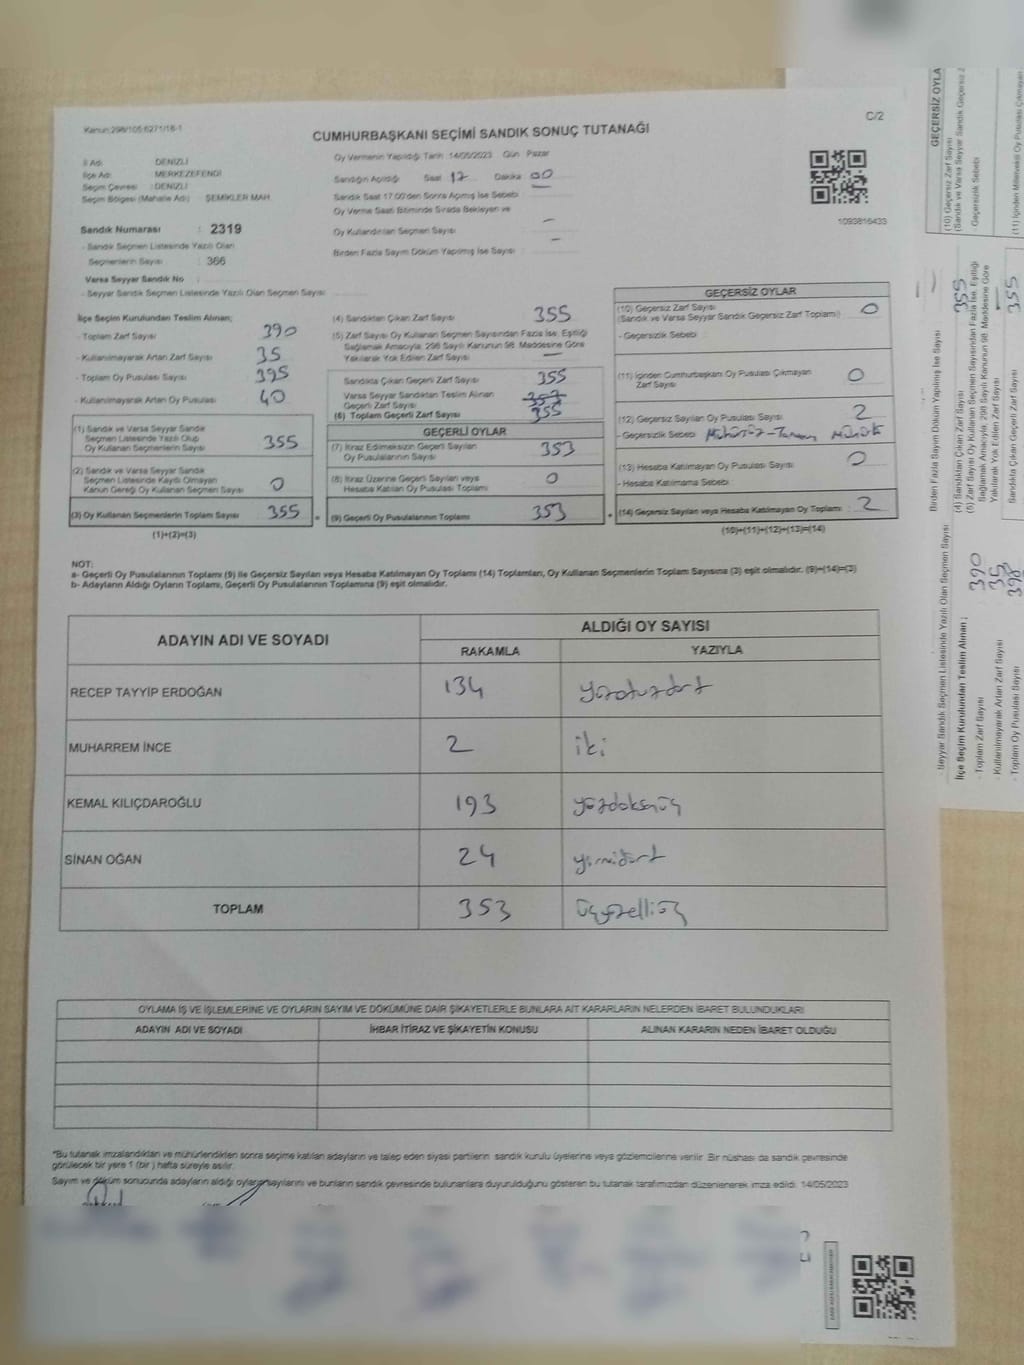 Kanun:298/105;6271/18-1
C/2
CUMHURBAŞKANI SEÇİMİ SANDIK SONUÇ TUTANAĞI
İl Adı: DENİZLİ
İlçe Adı: MERKEZEFENDİ
Seçim Çevresi : DENİZLİ
Seçim Bölgesi (Mahalle Adı) : ŞEMİKLER MAH.
Sandık Numarası : 2319
- Sandık Seçmen Listesinde Yazılı Olan
Seçmenlerin Sayısı : 366
Varsa Seyyar Sandık No
- Seyyar Sandık Seçmen Listesinde Yazılı Olan Seçmen Sayısı
Oy Vermenin Yapıldığı Tarih :14/05/2023 Gün : Pazar
Sandığın Açıldığı Saat 17 Dakika 00
Sandık Saat 17.00'den Sonra Açılmış İse Sebebi
Oy Verme Saati Bitiminde Sırada Bekleyen ve
Oy Kullandırılan Seçmen Sayısı —
Birden Fazla Sayım Döküm Yapılmış İse Sayısı : —
1093816433
İlçe Seçim Kurulundan Teslim Alınan;
- Toplam Zarf Sayısı : 390
- Kullanılmayarak Artan Zarf Sayısı : 35
- Toplam Oy Pusulası Sayısı : 395
- Kullanılmayarak Artan Oy Pusulası : 40
(1) Sandık ve Varsa Seyyar Sandık
Seçmen Listesinde Yazılı Olup
Oy Kullanan Seçmenlerin Sayısı : 355
(2) Sandık ve Varsa Seyyar Sandık
Seçmen Listesinde Kaydı Olmayan
Kanun Gereği Oy Kullanan Seçmen Sayısı : 0
(3) Oy Kullanan Seçmenlerin Toplam Sayısı : 355
(1)+(2)=(3)
(4) Sandıktan Çıkan Zarf Sayısı : 355
(5) Zarf Sayısı Oy Kullanan Seçmen Sayısından Fazla İse, Eşitliği
Sağlamak Amacıyla, 298 Sayılı Kanunun 98. Maddesine Göre
Yakılarak Yok Edilen Zarf Sayısı —
Sandıkta Çıkan Geçerli Zarf Sayısı : 355
Varsa Seyyar Sandıktan Teslim Alınan
Geçerli Zarf Sayısı
(6) Toplam Geçerli Zarf Sayısı : 355
GEÇERLİ OYLAR
(7) İtiraz Edilmeksizin Geçerli Sayılan
Oy Pusulalarının Sayısı : 353
(8) İtiraz Üzerine Geçerli Sayılan veya
Hesaba Katılan Oy Pusulası Toplamı : 0
(9) Geçerli Oy Pusulalarının Toplamı : 353
GEÇERSİZ OYLAR
(10) Geçersiz Zarf Sayısı
(Sandık ve Varsa Seyyar Sandık Geçersiz Zarf Toplamı) : 0
- Geçersizlik Sebebi
(11) İçinden Cumhurbaşkanı Oy Pusulası Çıkmayan
Zarf Sayısı : 0
(12) Geçersiz Sayılan Oy Pusulası Sayısı : 2
- Geçersizlik Sebebi : Mühürsüz -
(13) Hesaba Katılmayan Oy Pusulası Sayısı : 0
- Hesaba Katılmama Sebebi
(14) Geçersiz Sayılan veya Hesaba Katılmayan Oy Toplamı : 2
(10)+(11)+(12)+(13)=(14)
NOT:
a- Geçerli Oy Pusulalarının Toplamı (9) ile Geçersiz Sayılan veya Hesaba Katılmayan Oy Toplamı (14) Toplamları, Oy Kullanan Seçmenlerin Toplam Sayısına (3) eşit olmalıdır. (9)+(14)=(3)
b- Adayların Aldığı Oyların Toplamı, Geçerli Oy Pusulalarının Toplamına (9) eşit olmalıdır.
ADAYIN ADI VE SOYADI
ALDIĞI OY SAYISI
RAKAMLA YAZIYLA
RECEP TAYYİP ERDOĞAN 134 yüzotuzdört
MUHARREM İNCE 2 iki
KEMAL KILIÇDAROĞLU 193 yüzdoksanüç
SİNAN OĞAN 24 yirmidört
TOPLAM 353 üçyüzelliüç
OYLAMA İŞ VE İŞLEMLERİNE VE OYLARIN SAYIM VE DÖKÜMÜNE DAİR ŞİKAYETLERLE BUNLARA AİT KARARLARIN NELERDEN İBARET BULUNDUKLARI
ADAYIN ADI VE SOYADI İHBAR İTİRAZ VE ŞİKAYETİN KONUSU ALINAN KARARIN NEDEN İBARET OLDUĞU
*Bu tutanak imzalandıktan ve mühürlendikten sonra seçime katılan adayların ve talep eden siyasi partilerin sandık kurulu üyelerine veya gözlemcilerine verilir. Bir nüshası da sandık çevresinde
görülecek bir yere 1 (bir) hafta süreyle asılır.
Sayım ve döküm sonucunda adayların aldığı oyların sayılarını ve bunların sandık çevresinde bulunanlara duyurulduğunu gösteren bu tutanak tarafımızdan düzenlenerek imza edildi. 14/05/2023
GEÇERSİZ OYLA
(10) Geçersiz Zarf Sayısı
(Sandık ve Varsa Seyyar Sandık Geçersiz Z
- Geçersizlik Sebebi
(11) İçinden Milletvekili Oy Pusulası Çıkmayan
Birden Fazla Sayım Döküm Yapılmış İse Sayısı
(4) Sandıktan Çıkan Zarf Sayısı : 355
(5) Zarf Sayısı Oy Kullanan Seçmen Sayısından Fazla İse, Eşitliği
Sağlamak Amacıyla, 298 Sayılı Kanunun 98. Maddesine Göre
Yakılarak Yok Edilen Zarf Sayısı
Sandıkta Çıkan Geçerli Zarf Sayısı 355
- Seyyar Sandık Seçmen Listesinde Yazılı Olan Seçmen Sayısı
İlçe Seçim Kurulundan Teslim Alınan ;
- Toplam Zarf Sayısı : 390
- Kullanılmayarak Artan Zarf Sayısı : 35
- Toplam Oy Pusulası Sayısı